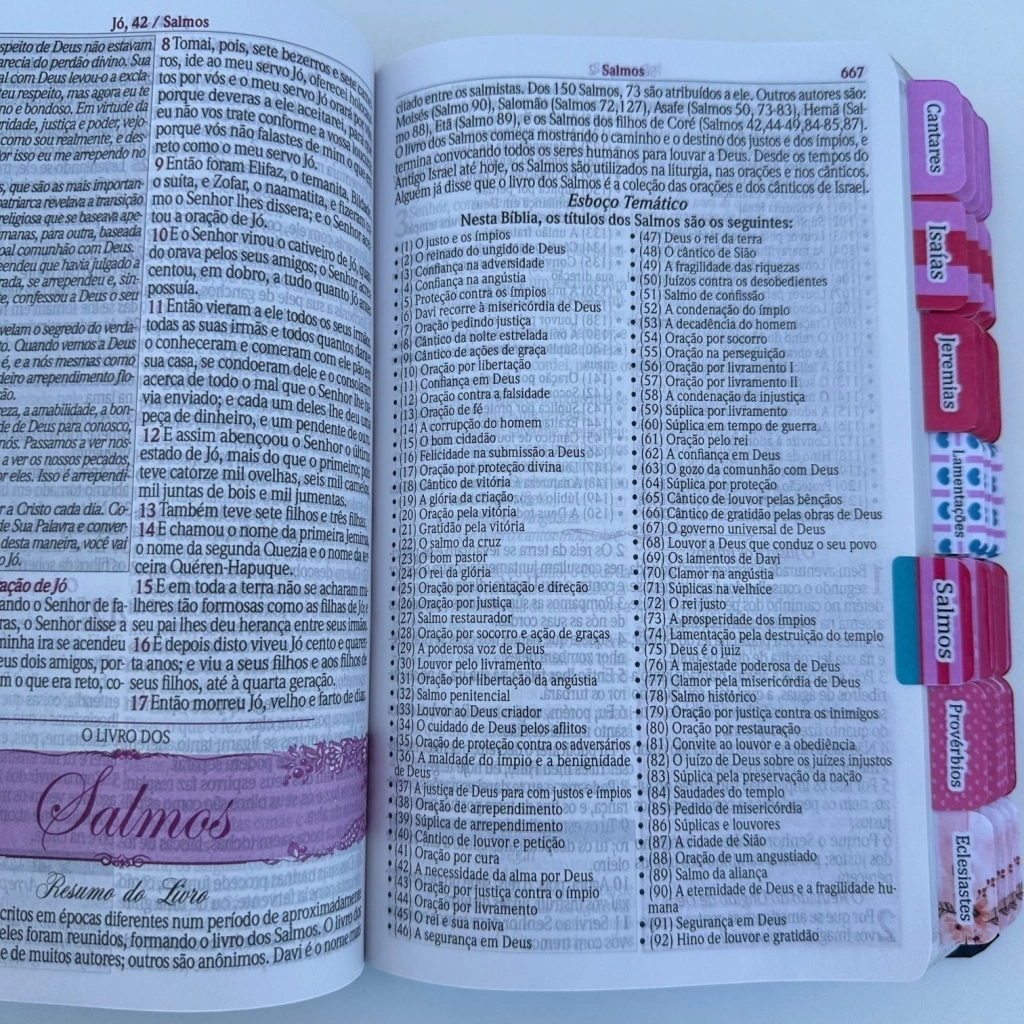 Jó, 42 / Salmos
speito de Deus não estavam
arecia do perdão divino. Sua
al com Deus levou-o a excla-
teu respeito, mas agora eu te
no e bondoso. Em virtude da
ridade, justiça e poder, vejo-
como sou realmente, e des-
or isso eu me arrependo no
s, que são as mais importan-
patriarca revelava a transição
religiosa que se baseava ape-
manas, para outra, baseada
oal comunhão com Deus.
eendeu que havia julgado a
rada, se arrependeu e, sin-
te, confessou a Deus o seu
velam o segredo do verda-
to. Quando vemos a Deus
é, e a nós mesmas como
deiro arrependimento flo-
ção.
eza, a amabilidade, a bon-
de de Deus para conosco,
nós. Passamos a ver nos-
a ver os nossos pecados,
or eles. Isso é arrependi-
r a Cristo cada dia. Co-
de Sua Palavra e conver-
desta maneira, você vai
o Jó.
ração de Jó
ando o Senhor de fa-
ras, o Senhor disse a
minha ira se acendeu
eus dois amigos, por-
m o que era reto, co-
8 Tomai, pois, sete bezerros e sete
ros, ide ao meu servo Jó, oferecei
tos por vós e o meu servo Jó orará por vós
porque deveras a ele aceitarei, para
eu não vos trate conforme a vossa
porquê vós não falastes de mim o que
reto como o meu servo Jó.
9 Então foram Elifaz, o temanita,
o suíta, e Zofar, o naamatita, e fizeram
mo o Senhor lhes dissera; e o Senhor
tou a oração de Jó.
10 E o Senhor virou o cativeiro de Jó,
do orava pelos seus amigos; o Senhor
centou, em dobro, a tudo quanto Jó
possuía.
11 Então vieram a ele todos os seus
todas as suas irmãs e todos quantos
o conheceram e comeram com ele pão em
sua casa, se condoeram dele e o
acerca de todo o mal que o Senhor lhe
via enviado; e cada um deles lhe deu uma
peça de dinheiro, e um pendente de
12 E assim abençoou o Senhor o último
estado de Jó, mais do que o primeiro;
teve catorze mil ovelhas, seis mil
mil juntas de bois e mil jumentas.
13 Também teve sete filhos e três filhas.
14 E chamou o nome da primeira Jemima,
o nome da segunda Quezia e o nome da
ceira Quéren-Hapuque.
15 E em toda a terra não se acharam
lheres tão formosas como as filhas de Jó; e
seu pai lhes deu herança entre seus
16 E depois disto viveu Jó cento e quaren-
ta anos; e viu a seus filhos e aos filhos de
seus filhos, até à quarta geração.
17 Então morreu Jó, velho e farto de dias.
O LIVRO DOS
Salmos
Resumo do Livro
critos em épocas diferentes num período de aproximadamente
eles foram reunidos, formando o livro dos Salmos. O livro dos
e de muitos autores; outros são anônimos. Davi é o nome mais
Salmos 667
citado entre os salmistas. Dos 150 Salmos, 73 são atribuídos a ele. Outros autores são:
Moisés (Salmo 90), Salomão (Salmos 72,127), Asafe (Salmos 50, 73-83), Hemã (Sal-
mo 88), Etã (Salmo 89), e os Salmos dos filhos de Coré (Salmos 42,44-49,84-85,87).
O livro dos Salmos começa mostrando o caminho e o destino dos justos e dos ímpios, e
termina convocando todos os seres humanos para louvar a Deus. Desde os tempos do
Antigo Israel até hoje, os Salmos são utilizados na liturgia, nas orações e nos cânticos.
Alguém já disse que o livro dos Salmos é a coleção das orações e dos cânticos de Israel.
Esboço Temático
Nesta Bíblia, os títulos dos Salmos são os seguintes:
• (1) O justo e os ímpios
• (2) O reinado do ungido de Deus
• (3) Confiança na adversidade
• (4) Confiança na angústia
• (5) Proteção contra os ímpios
• (6) Davi recorre à misericórdia de Deus
• (7) Oração pedindo justiça
• (8) Cântico da noite estrelada
• (9) Cântico de ações de graça
• (10) Oração por libertação
• (11) Confiança em Deus
• (12) Oração contra a falsidade
• (13) Oração de fé
• (14) A corrupção do homem
• (15) O bom cidadão
• (16) Felicidade na submissão a Deus
• (17) Oração por proteção divina
• (18) Cântico de vitória
• (19) A glória da criação
• (20) Oração pela vitória
• (21) Gratidão pela vitória
• (22) O salmo da cruz
• (23) O bom pastor
• (24) O rei da glória
• (25) Oração por orientação e direção
• (26) Oração por justiça
• (27) Salmo restaurador
• (28) Oração por socorro e ação de graças
• (29) A poderosa voz de Deus
• (30) Louvor pelo livramento
• (31) Oração por libertação da angústia
• (32) Salmo penitencial
• (33) Louvor ao Deus criador
• (34) O cuidado de Deus pelos aflitos
• (35) Oração de proteção contra os adversários
• (36) A maldade do ímpio e a benignidade
de Deus
• (37) A justiça de Deus para com justos e ímpios
• (38) Oração de arrependimento
• (39) Súplica de arrependimento
• (40) Cântico de louvor e petição
• (41) Oração por cura
• (42) A necessidade da alma por Deus
• (43) Oração por justiça contra o ímpio
• (44) Oração por livramento
• (45) O rei e sua noiva
• (46) A segurança em Deus
• (47) Deus o rei da terra
• (48) O cântico de Sião
• (49) A fragilidade das riquezas
• (50) Juízos contra os desobedientes
• (51) Salmo de confissão
• (52) A condenação do ímpio
• (53) A decadência do homem
• (54) Oração por socorro
• (55) Oração na perseguição
• (56) Oração por livramento I
• (57) Oração por livramento II
• (58) A condenação da injustiça
• (59) Súplica por livramento
• (60) Súplica em tempo de guerra
• (61) Oração pelo rei
• (62) A confiança em Deus
• (63) O gozo da comunhão com Deus
• (64) Súplica por proteção
• (65) Cântico de louvor pelas bênçãos
• (66) Cântico de gratidão pelas obras de Deus
• (67) O governo universal de Deus
• (68) Louvor a Deus que conduz o seu povo
• (69) Os lamentos de Davi
• (70) Clamor na angústia
• (71) Súplicas na velhice
• (72) O rei justo
• (73) A prosperidade dos ímpios
• (74) Lamentação pela destruição do templo
• (75) Deus é o juiz
• (76) A majestade poderosa de Deus
• (77) Clamor pela misericórdia de Deus
• (78) Salmo histórico
• (79) Oração por justiça contra os inimigos
• (80) Oração por restauração
• (81) Convite ao louvor e a obediência
• (82) O juízo de Deus sobre os juízes injustos
• (83) Súplica pela preservação da nação
• (84) Saudades do templo
• (85) Pedido de misericórdia
• (86) Súplicas e louvores
• (87) A cidade de Sião
• (88) Oração de um angustiado
• (89) Salmo da aliança
• (90) A eternidade de Deus e a fragilidade hu-
mana
• (91) Segurança em Deus
• (92) Hino de louvor e gratidão
Cantares
Isaías
Jeremias
Lamentações
Salmos
Provérbios
Eclesiastes